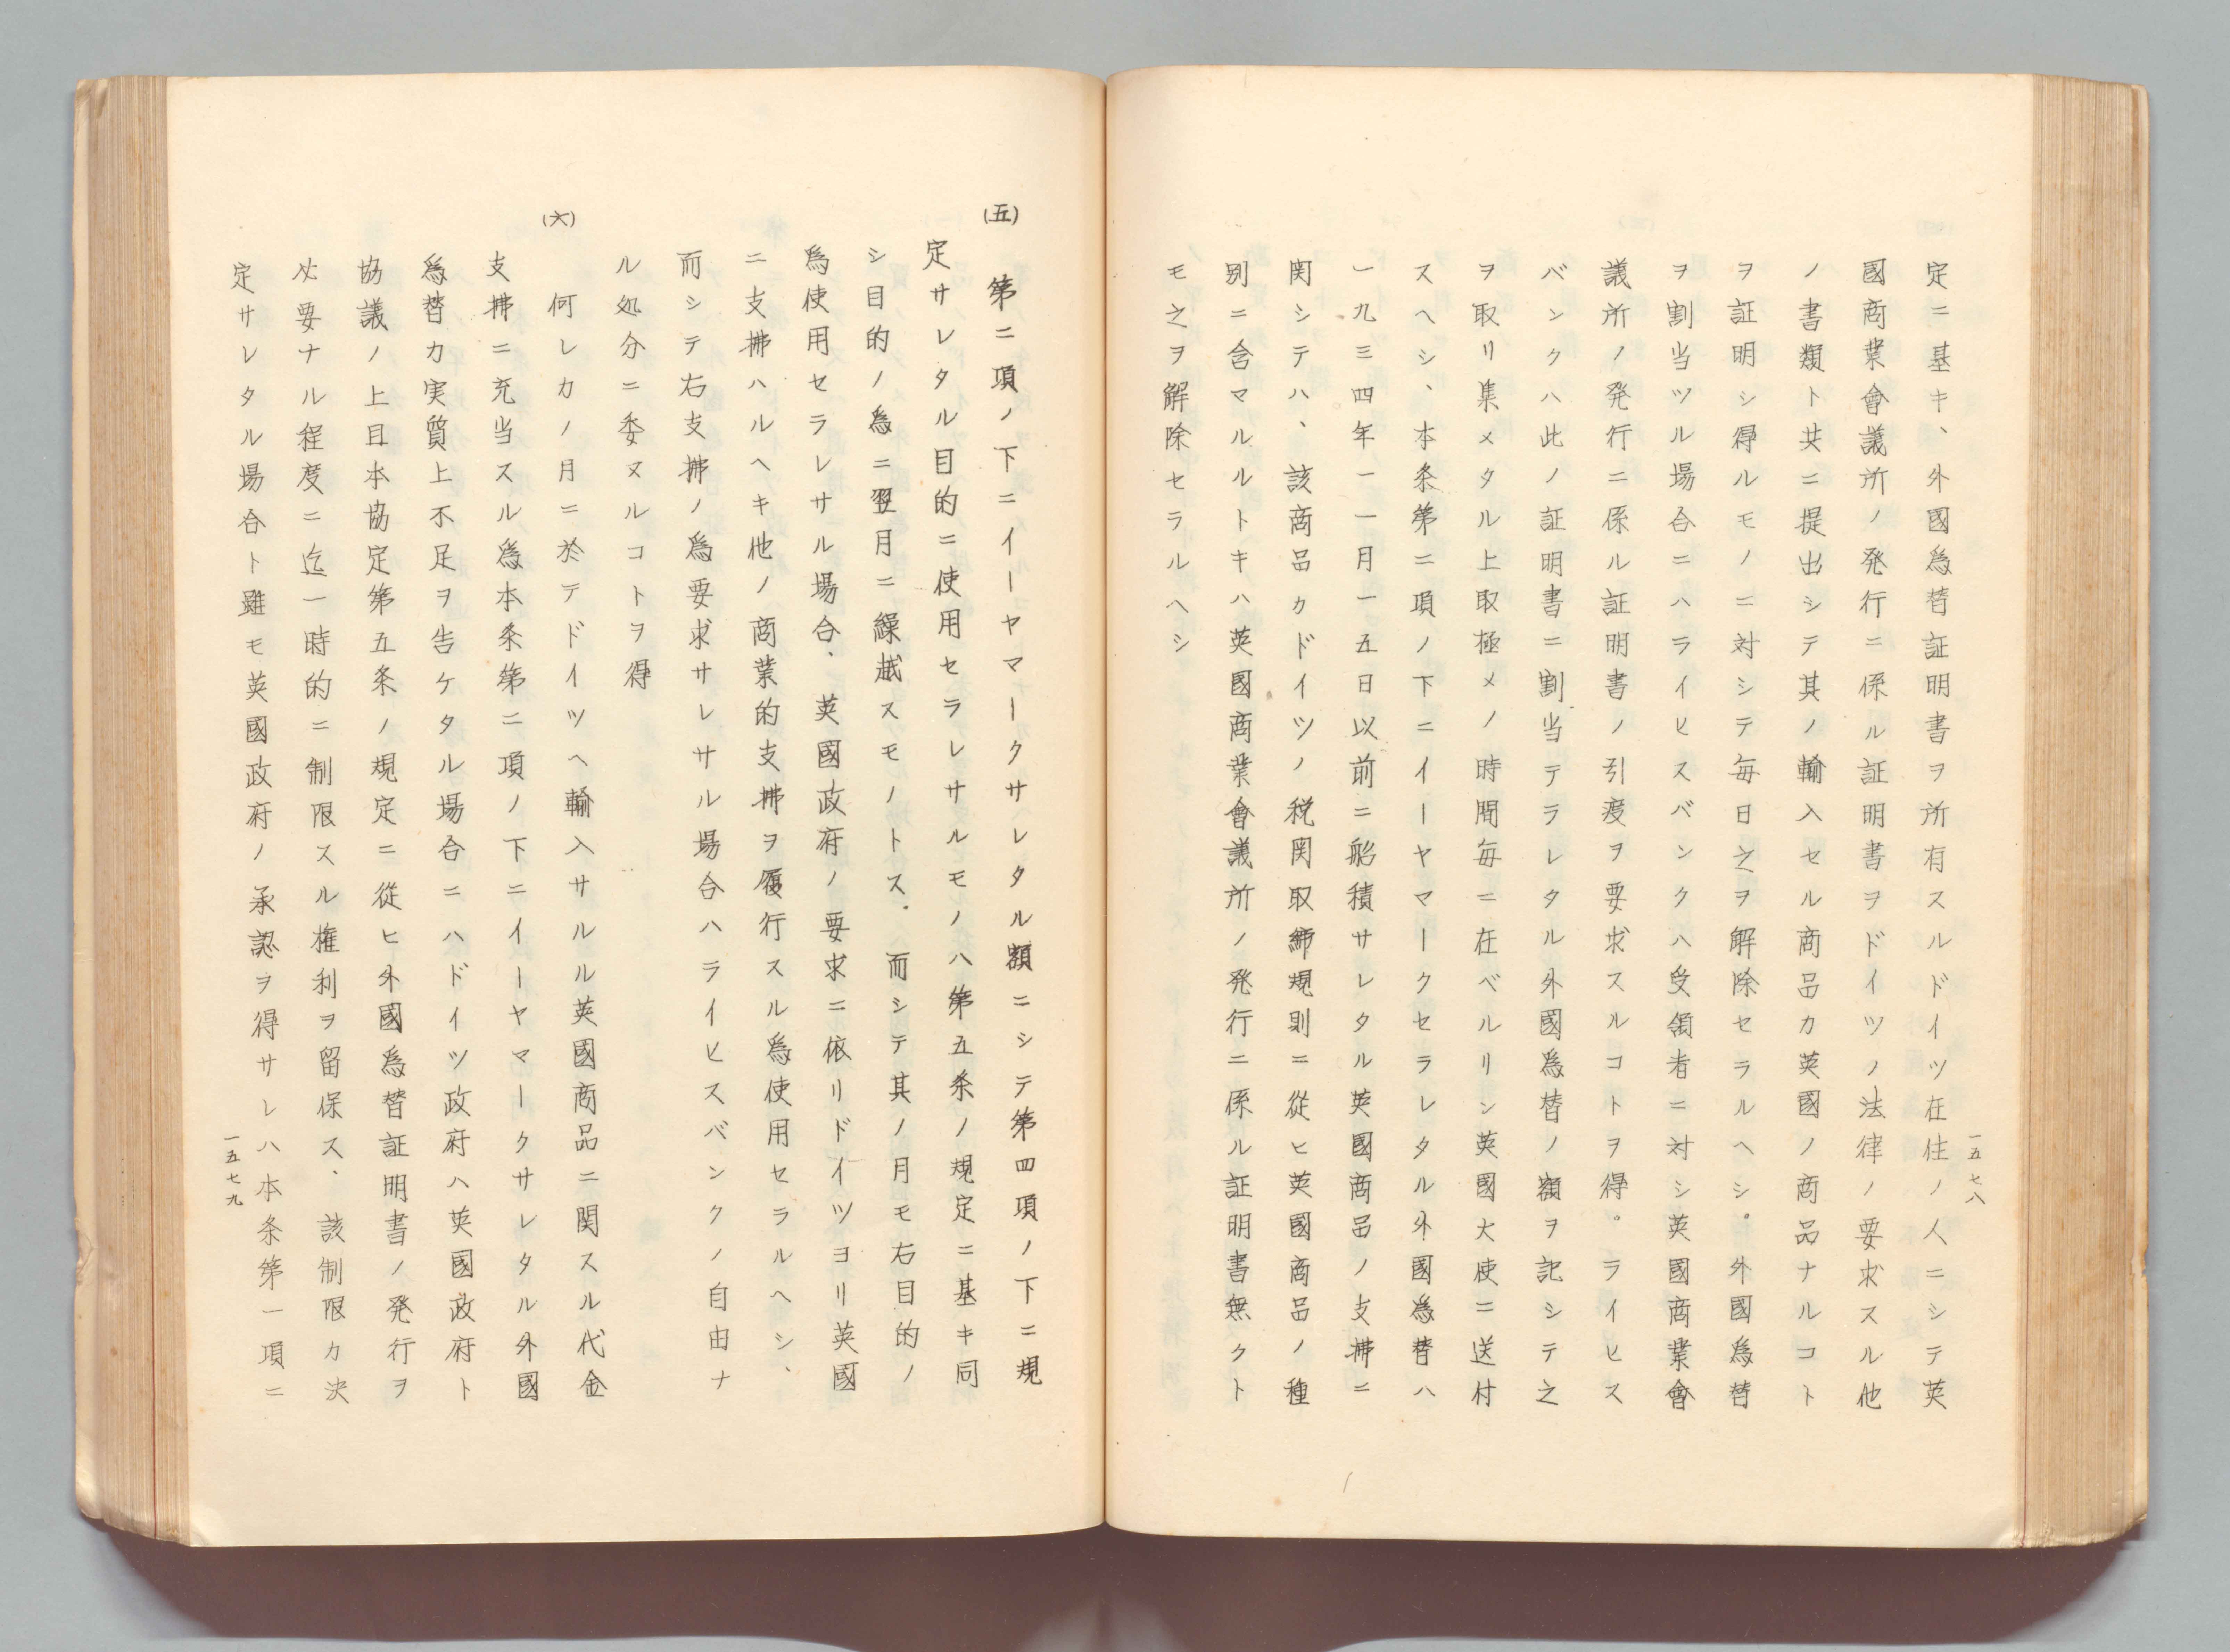 一五七八
定ニ基キ、外國爲替証明書ヲ所有スルドイツ在住ノ人ニシテ英
國商業會議所ノ発行ニ係ル証明書ヲドイツノ法律ノ要求スル他
ノ書類ト共ニ提出シテ其ノ輸入セル商品カ英國ノ商品ナルコト
ヲ証明シ得ルモノニ対シテ毎日之ヲ解除セラルヘシ。外國爲替
ヲ割当ツル場合ニハライヒスバンクハ受領者ニ対シ英國商業會
議所ノ発行ニ係ル証明書ノ引渡ヲ要求スルコトヲ得。ライヒス
バンクハ此ノ証明書ニ割当テラレタル外國爲替ノ額ヲ記シテ之
ヲ取リ集メタル上取極メノ時間毎ニ在ベルリン英國大使ニ送付
スヘシ、本条第二項ノ下ニイーヤマークセラレタル外國爲替ハ
一九三四年一一月一五日以前ニ船積サレタル英國商品ノ支拂ニ
関シテハ、該商品カドイツノ税関取締規則ニ從ヒ英國商品ノ種
別ニ含マルルトキハ英國商業會議所ノ発行ニ係ル証明書無クト
モ之ヲ解除セラルヘシ
(五)
第二項ノ下ニイーヤマークサレタル額ニシテ第四項ノ下ニ規
定サレタル目的ニ使用セラレサルモノハ第五条ノ規定ニ基キ同
シ目的ノ爲ニ翌月ニ繰越スモノトス．而シテ其ノ月モ右目的ノ
爲使用セラレサル場合、英國政府ノ要求ニ依リドイツヨリ英國
ニ支拂ハルヘキ他ノ商業的支拂ヲ履行スル爲使用セラルヘシ、
而シテ右支拂ノ爲要求サレサル場合ハライヒスバンクノ自由ナ
ル処分ニ委ヌルコトヲ得
(六)
何レカノ月ニ於テドイツヘ輸入サルル英國商品ニ関スル代金
支拂ニ充当スル爲本条第二項ノ下ニイーヤマークサレタル外國
爲替カ実質上不足ヲ告ケタル場合ニハドイツ政府ハ英國政府ト
協議ノ上目本協定第五条ノ規定ニ從ヒ外國爲替証明書ノ発行ヲ
必要ナル程度ニ迄一時的ニ制限スル権利ヲ留保ス、該制限カ決
定サレタル場合ト雖モ英國政府ノ承認ヲ得サレハ本条第一項ニ
一五七九